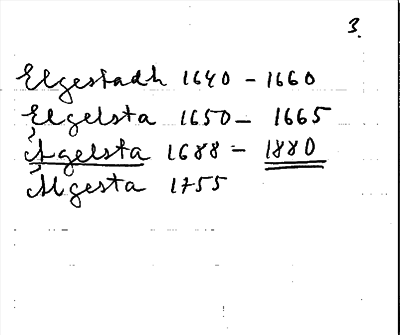 3.
Elgestadh 1640 - 1660
Elgelsta 1650 - 1665
Ágelsta 1688 - 1880
Álgesta 1755